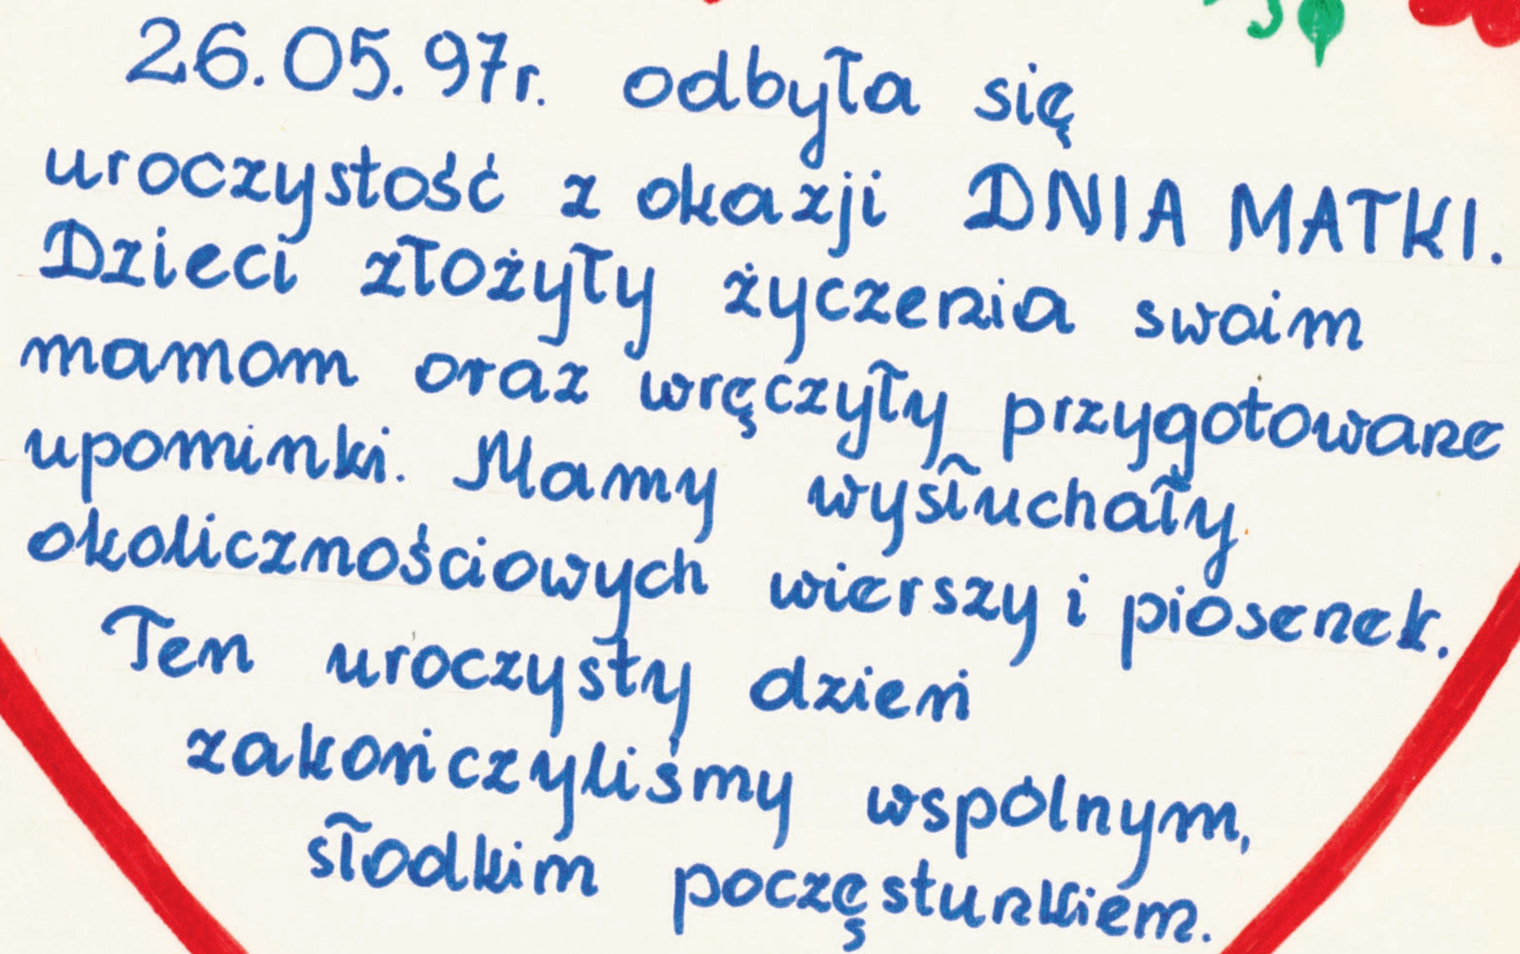 26.05.97r. odbyła się
uroczystość z okazji DNIA MATKI.
Dzieci złożyły życzenia swoim
mamom oraz wręczyły przygotowane
upominki. Mamy wysłuchały
okolicznościowych wierszy i piosenek.
Ten uroczysty dzień
zakończyliśmy wspólnym,
słodkim poczęstunkiem.